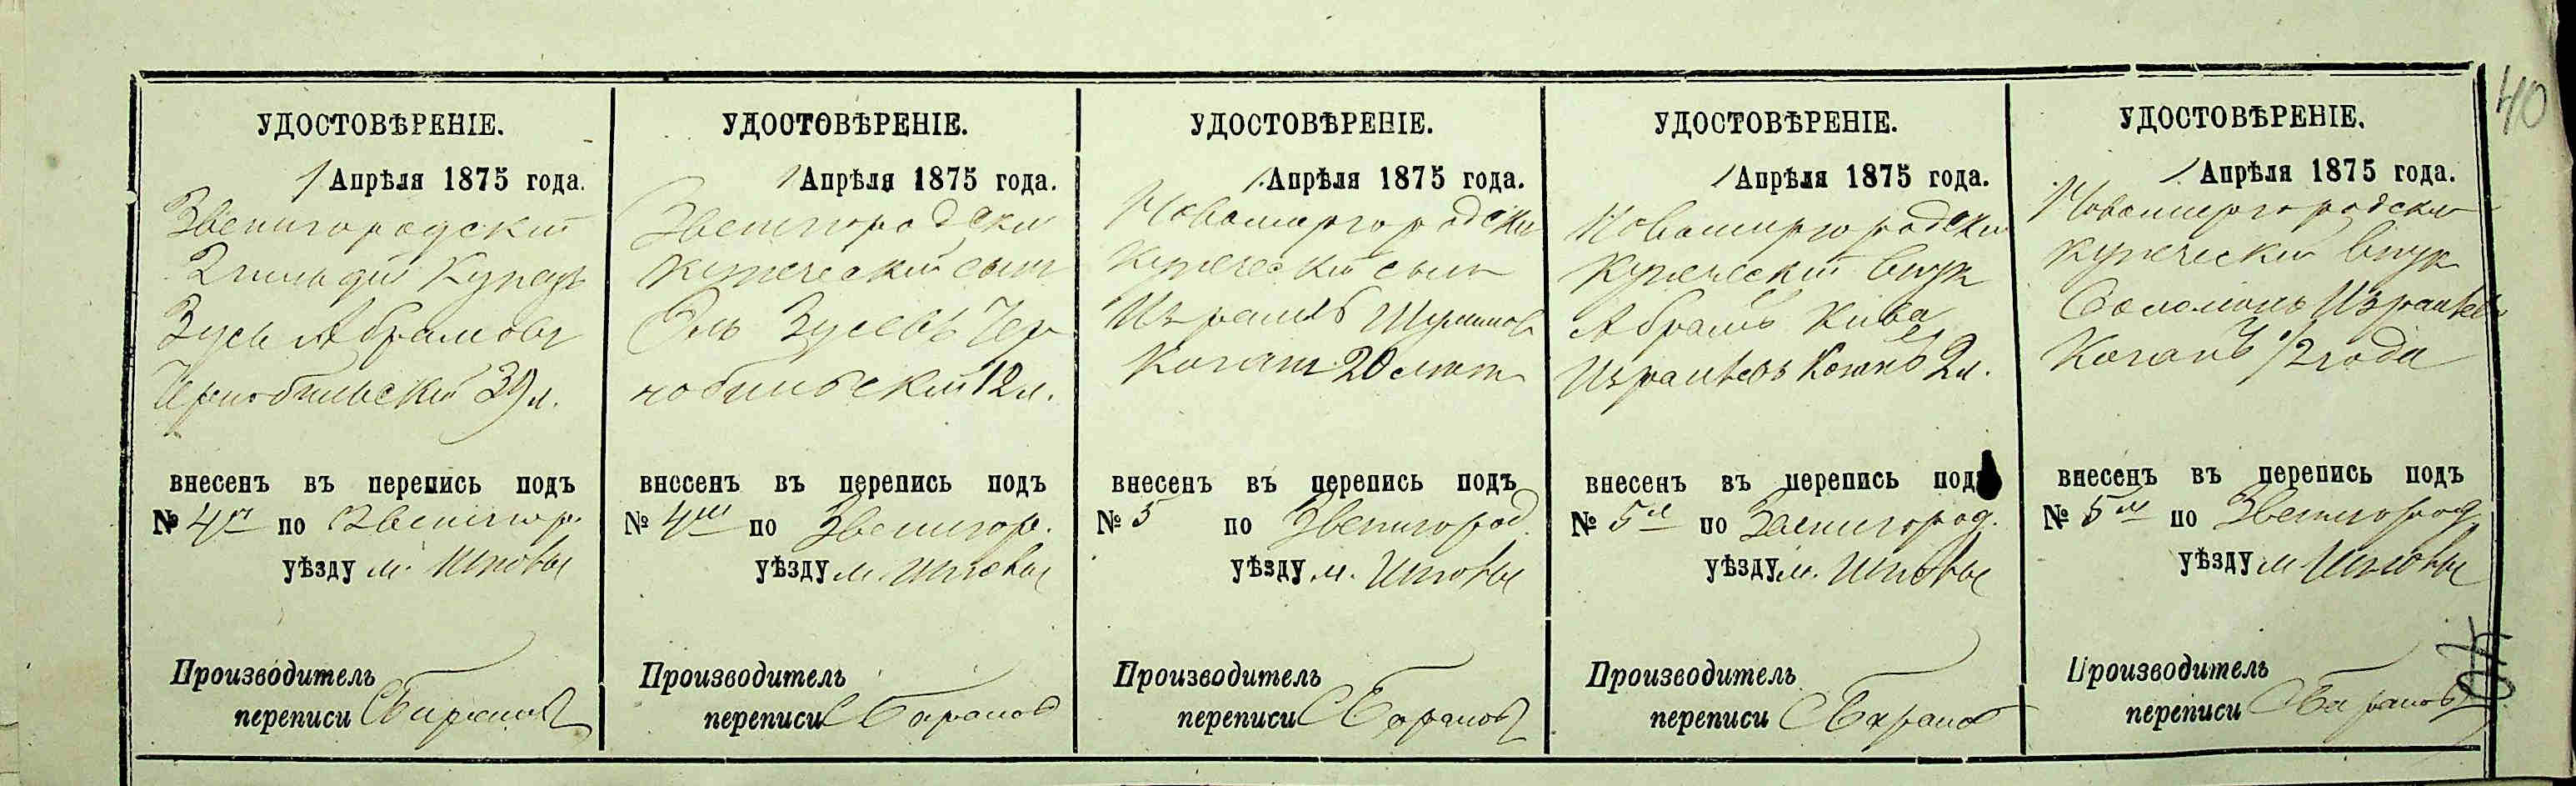 40
УДОСТОВѢРЕНІЕ.
1 Апрѣля 1875 года.
Звенигородскій
2 гильдіи Купецъ
Зусь Абрамовъ
Чернобыльскій 39 л.
внесенъ въ перепись подъ
№ 4 по Звенигор.
уѣзду м. Шполы
Производитель
переписи СБарановъ
УДОСТОВѢРЕНІЕ.
1 Апрѣля 1875 года.
Звенигородскій
купеческій сынъ
Зусевъ Чер
нобыльскій 12 л.
внесенъ въ перепись подъ
№ 4 по Звенигор.
уѣзду м. Шполы
Производитель
переписи СБарановъ
УДОСТОВѢРЕНІЕ.
1 Апрѣля 1875 года.
Новомиргородскій
Купеческій сынъ
Израиль Шулимовъ
Коганъ 20 лѣтъ
внесенъ въ перепись подъ
№ 5 по Звенигород.
уѣзду м. Шполы
Производитель
переписи СБарановъ
УДОСТОВѢРЕНІЕ.
1 Апрѣля 1875 года.
Новомиргородскій
Купеческій внукъ
Абрамъ Кива
Израилевъ Коганъ 2 л.
внесенъ въ перепись подъ
№ 5 по Звенигород.
уѣзду м. Шполы
Производитель
переписи СБарановъ
УДОСТОВѢРЕНІЕ.
1 Апрѣля 1875 года.
Новомиргородскій
купеческій внукъ
Соломонъ Израилевъ
Коганъ 1/2 года
внесенъ въ перепись подъ
№ 5 по Звенигород
уѣзду м Шполы
Производитель
переписи СБарановъ